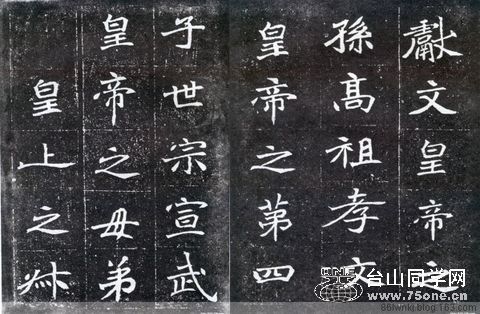 獻文皇帝之
孫高祖孝文
皇帝之第四
子世宗宣武
皇帝之母弟
皇上之叔
台山同学网
www.75one.cn